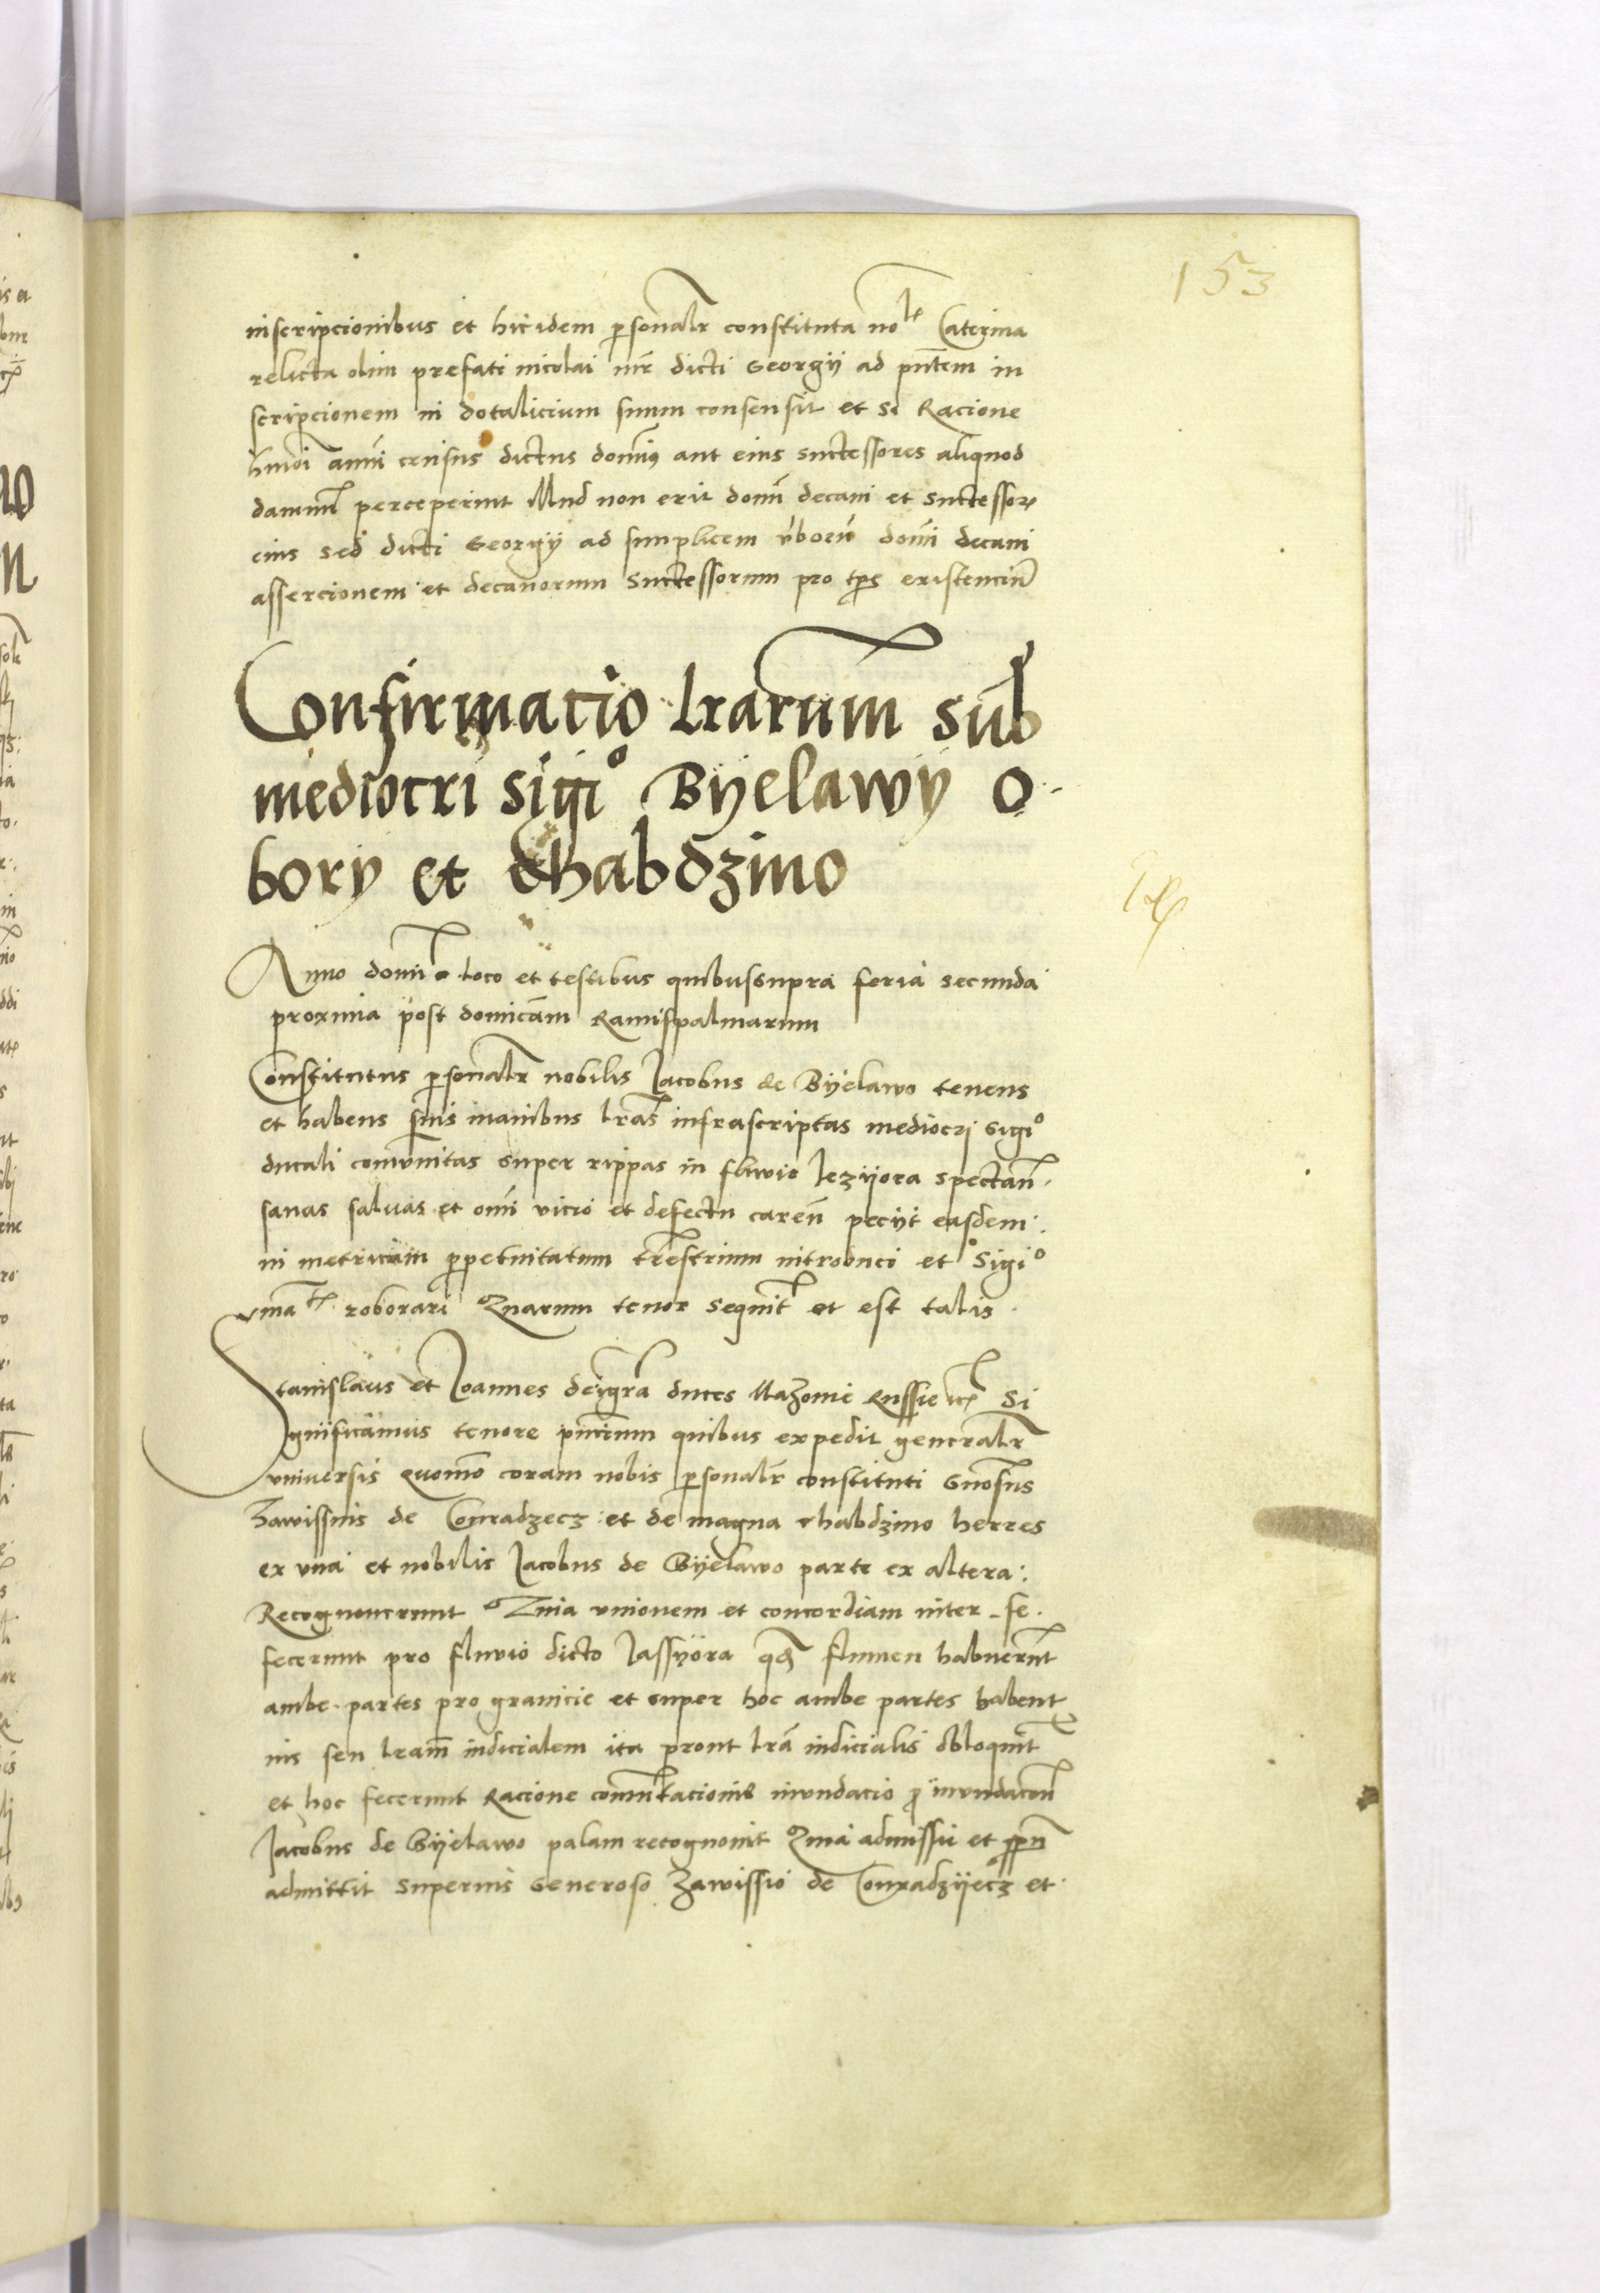 153
inscripcionibus et hic idem psonalr constituta nole Caterina
relicta olim prefati nicolai mr dicti Georgij ad pntem in
scripcionem in dotalicium suum consensit et si Racione
hmoi anni census dictus domin9 aut eius successores aliquod
damnu perceperint Illud non erit domi decani et successor
eius sed dicti Georgij ad simplicem vboru domi decani
assercionem et decanorum successorum pro tps existenciu
Confirmacio lrarum sub
mediocri sigo Byelawy O
bory et Chabdzino
Anno domi loco et testibus quibussupra feria secunda
proxima post domicam Ramispalmarum
Constitutus psonalr nobilis Jacobus de Byelawo tenens
et habens suis manibus lras infrascriptas mediocri sigo
ducali comunitas super rippas in fluvio Jezyora spectan
sanas salvas et omi vicio et defectu caren peciit easdem
in metricam ppetuitatum trestrium introduci et Sigo
roborari Quarum tenor sequit et est talis
Stanislaus et Joannes deigra duces Mazovie Russie etc Si
gnificamus tenore pncium quibus expedit generalr
universis quomo coram nobis psonalr constituti Gnosus
Zawissius de Conradzecz et de magna Chabdzino herres
ex una et nobilis Jacobus de Byelawo parte ex altera
Recognoverunt Quia unionem et concordiam inter se
fecerunt pro fluvio dicto Jassyora flumen habuerunt
ambe partes pro granicie et super hoc ambe partes habent
ius seu lram iudicialem ita prout lra iudicialis obloquit
et hoc fecerunt Racione comutacionis inundacio p inundacon
Jacobus de Byelawo palam recognovit Quia admissit et
admittit superius Generoso Zawissio de Conradzyecz et